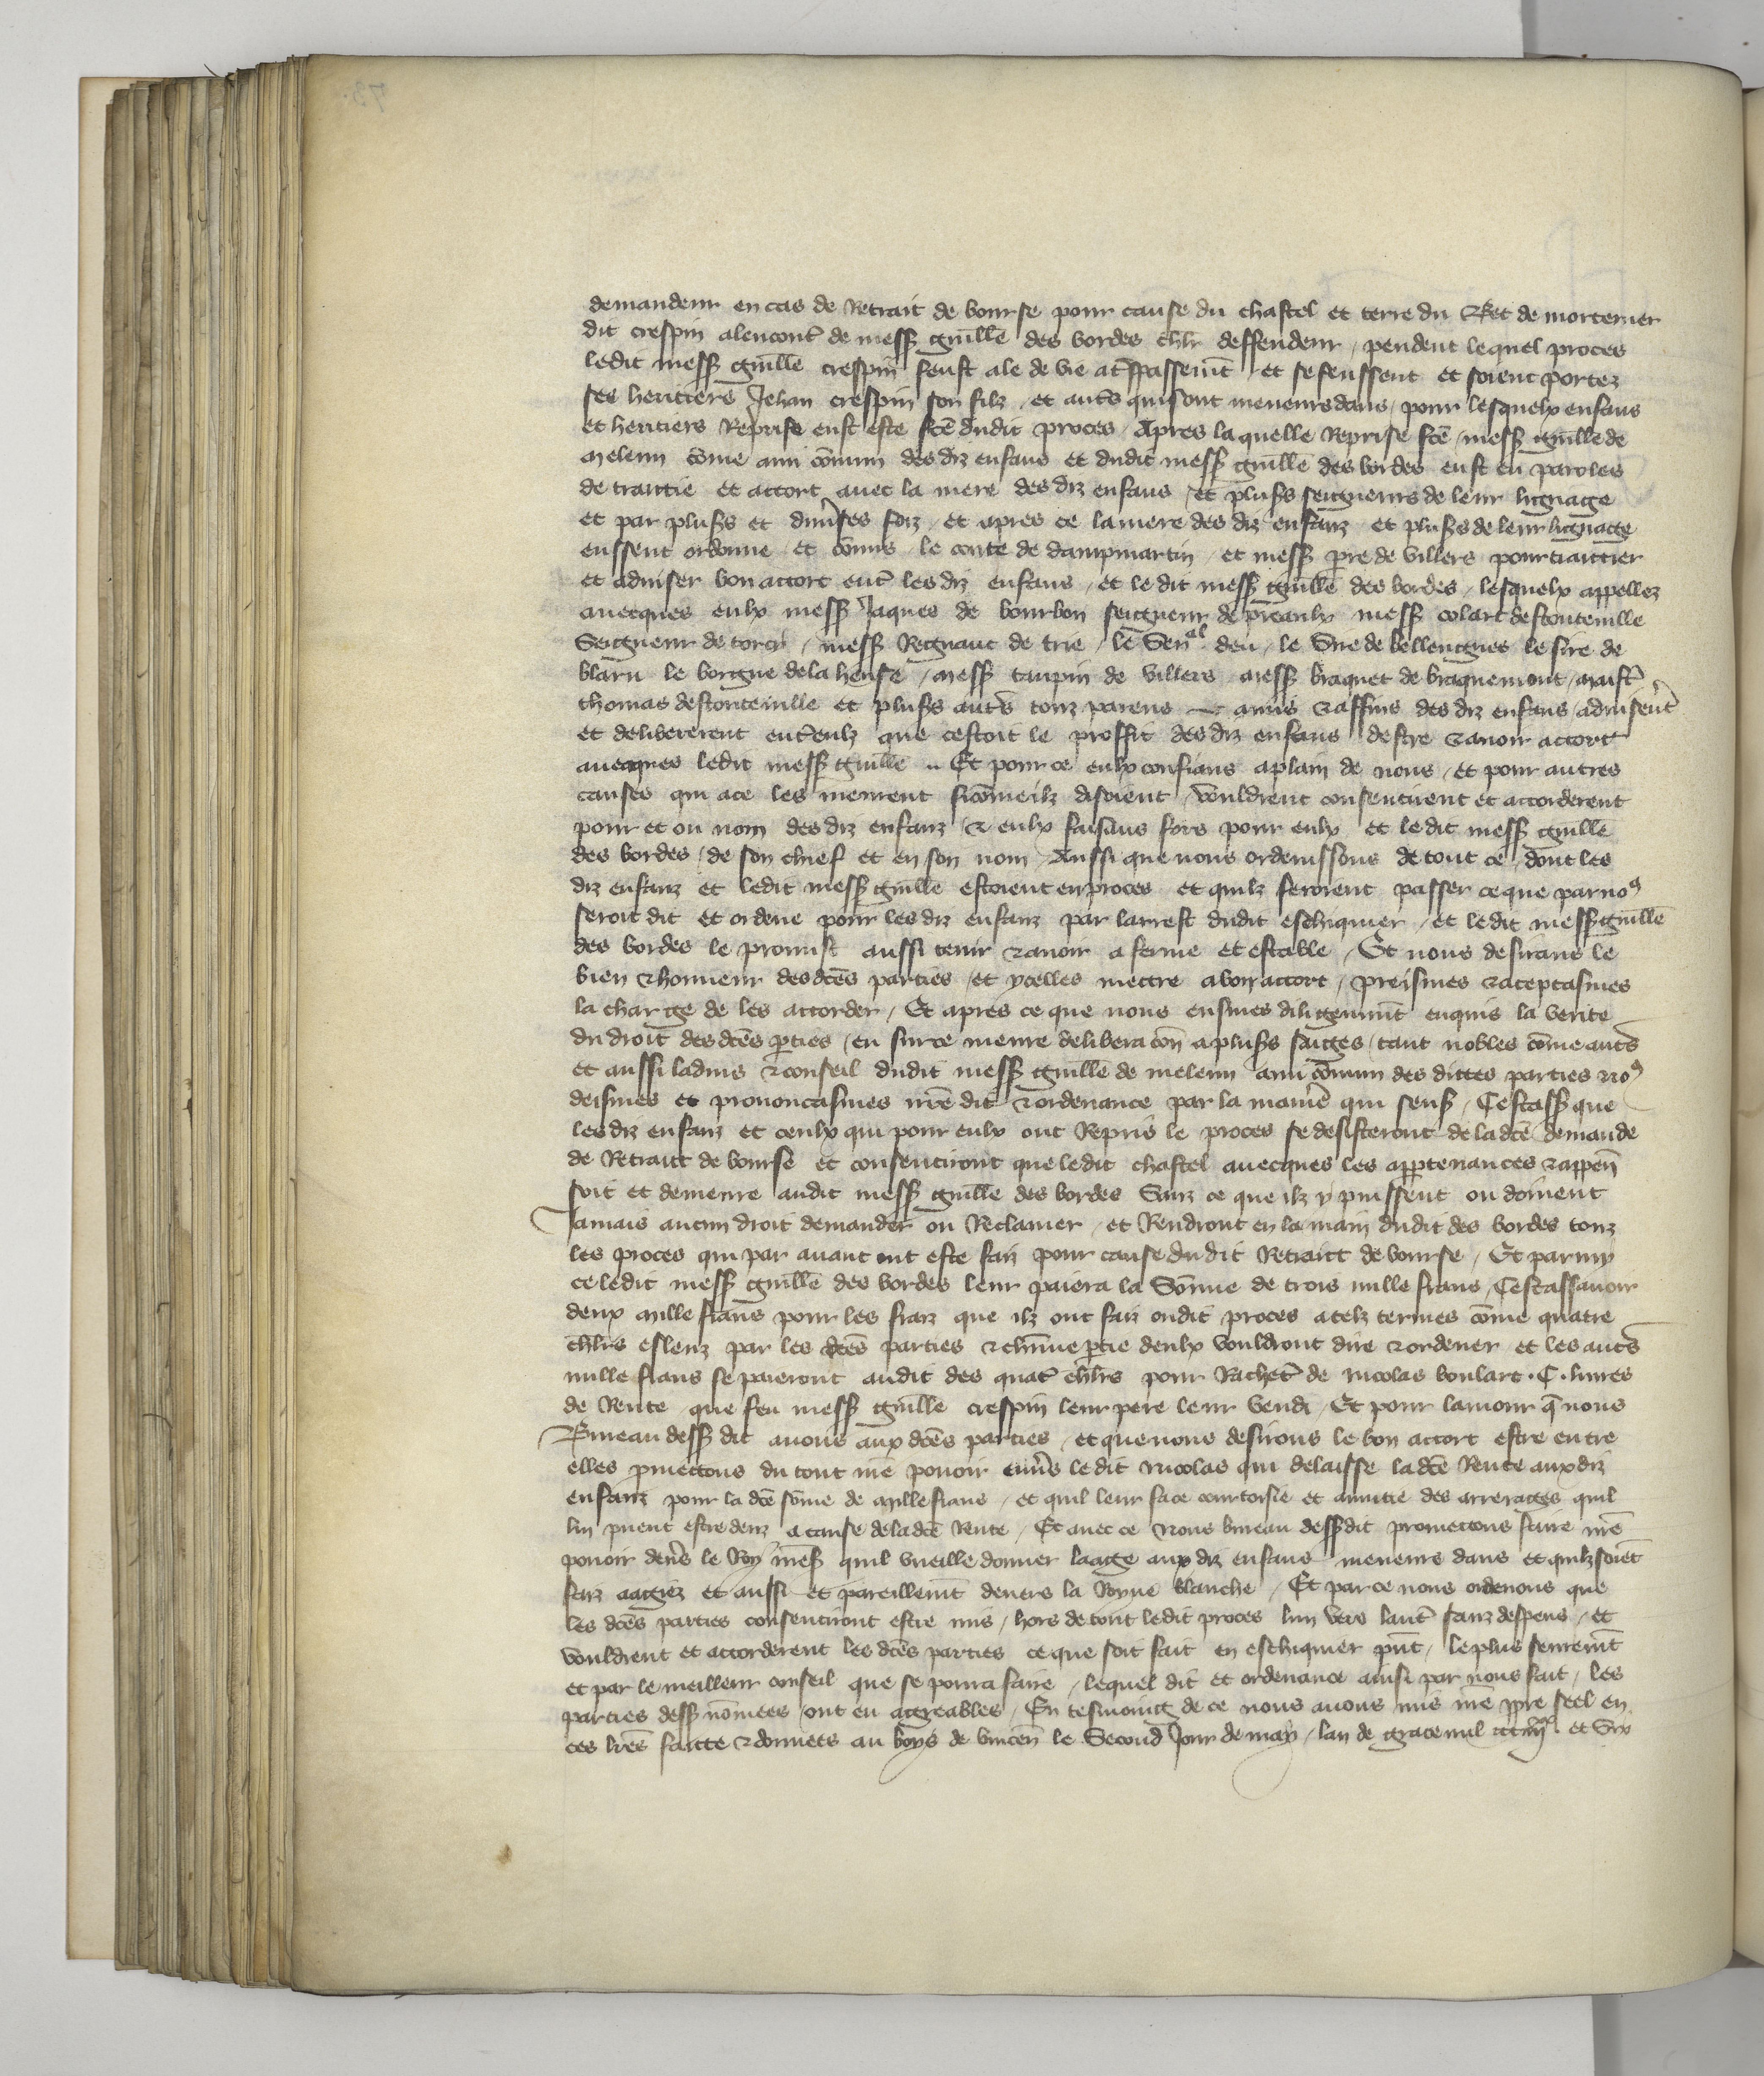 demandeur en cas de Retrait de bourse pour cause du chastel et terre du Bec de mortemer
dit crespin alencont̄ de mess̄ guill̄e des bordes ch̄lr deffendeur / pendent lequel proces
ledit mess̄ guill̄e crespin feust ale de vie at̄spassem̄t / et se feussent et soient portez
ses heritiers Jehan crespin son filz et aut̄s qui sont meneurs dans / pour lesquelx enfans
et heritiers Reprise eust este fc̄e dudit proces / Apres la quelle Reprise fc̄e / mess̄ guill̄e de
meleun cōme ami cōmun des diz enfans et dudit mess̄ guill̄e des bordes eust eu paroles
de traittie et accort avec la mere des diz enfans / et plus̄s seigneurs de leur lignage
et par plus̄s et div̄ses foiz / et apres ce la mere des diz enfanz et plus̄s de leur lignage
eussent ordonne et cōmis le conte de dampmartin / et mess̄ p̄re de villers pour traittier
et adviser bon accort ent̄ les diz enfans / et le dit mess̄ guill̄e des bordes / lesquelx appellez
avecques eulx mess̄ Jaques de bourbon seigneur de preaulx mess̄ colart destouteville
Seigneur de torcy / mess̄ Regnaut de trie / le Sen̄al deu / le Sire de bellengues le sire de
blaru le borgne de la heuse / mess̄ taupin de villers mess̄ braquet de braquemont / maist̄
thomas destouteville et plus̄s aut̄s touz parens amis & affins des diz enfans / adviser̄t
et delibererent ent̄eulz que cestoit le proffit des diz enfans destre & avoir accort
avecques ledit mess̄ guill̄e .. Et pour ce eulx confians aplain de nous / et pour autres
causes qui ace les meurent sicōme ilz disoient / vouldrent consentirent et accorderent
pour et ou nom des diz enfanz & eulx faisans fors pour eulx et ledit mess̄ guill̄e
des bordes / de son chief et en son nom / Aussi que nous ordenissons de tout ce / dont les
diz enfanz et ledit mess̄ guill̄e estoient en proces et quilz feroient passer ce que par noꝯ
seroit dit et ordene pour les diz enfanz par larrest dudit eschiquier / et le dit mess̄ guill̄e
des bordes le promist aussi tenir & avoir a ferme et estable / Et nous desirans le
bien & honneur des dc̄es parties et ycelles mettre a bon accort / preismes & aceptasmes
la charge de les accorder / Et apres ce que nous eusmes diligenm̄t enquis la verite
du droit des dc̄es p̄ties / eu sur ce meure deliberacōn a plus̄s saiges / tant nobles cōme aut̄s
et aussi ladvis & conseil dudit mess̄ guill̄e de meleun ami cōmun des dittes parties noꝯ
deismes et prononcasmes nr̄e dit & ordenance par la manie᷑ qui sens̄ / Cestass̄ que
les diz enfanz et ceulx qui pour eulx ont Repris le proces se desisteront de la dc̄e demande
de Retrait de bourse et consentiront que le dit chastel avecques les appertenances & appen̄
soit et demeure audit mess̄ guill̄e des bordes Sanz ce que ilz y puissent ou doivent
Jamais aucun droit demander ou Reclamer / et Rendront en la main dudit des bordes touz
les proces qui par avant ont este faiz pour cause du dit Retrait de bourse / Et parmy
ce ledit mess̄ guill̄e des bordes leur paiera la Sōme de trois mille frans / Cestassavoir
deux mille frans pour les fraiz que ilz ont faiz oudit proces atelz termes cōme quatre
ch̄lrs esleuz par les dc̄es parties & chūne p̄tie deulx vouldront dire & ordener et les aut̄s
mille frans se paieront audit des quat̄ ch̄lrs pour Rachet̄ de nicolas boulart . C . livres
de Rente que feu mess̄ guill̄e crespin leur pere leur vendi / Et pour lamour q̄ nous
Bureau dess̄ dit avons aux dc̄es parties / et que nous desirons le bon accort estre entre
elles p̄mettons du tout nr̄e povoir env̄s le dit nicolas qui delaisse la dc̄e Rente aux diz
enfanz pour la dc̄e sōme de mille frans / et quil leur face courtoisie et amitie des arrerages quil
lui puent estre deuz a cause de la dc̄e Rente / Et avec ce Nous bureau dess̄dit promettons faire nr̄e
povoir dev̄s le Roy nr̄es̄ quil vueille donner laage aux diz enfans meneurs dans et quilz soiēt
faiz aagiez et aussi et pareillem̄t devers la Royne blanche / Et par ce nous ordenons que
les dc̄es parties consentiront estre mis / hors de tout ledit proces lun vers laut̄ sanz despens / et
vouldrent et accorderent les dc̄es parties ce que soit fait en eschiquier p̄nt / le plus seurem̄t
et par le meilleur conseil que se pourra faire / lequel dit et ordenance ainsi par nous fait / les
parties dess̄ nōmees / ont eu agreables / En tesmoing de ce nous avons mis nr̄e p̄pre seel en
ces lr̄es faitte & donnees au boys de vincen̄ le Second Jour de may / lan de grace mil ccciiijxx et Six